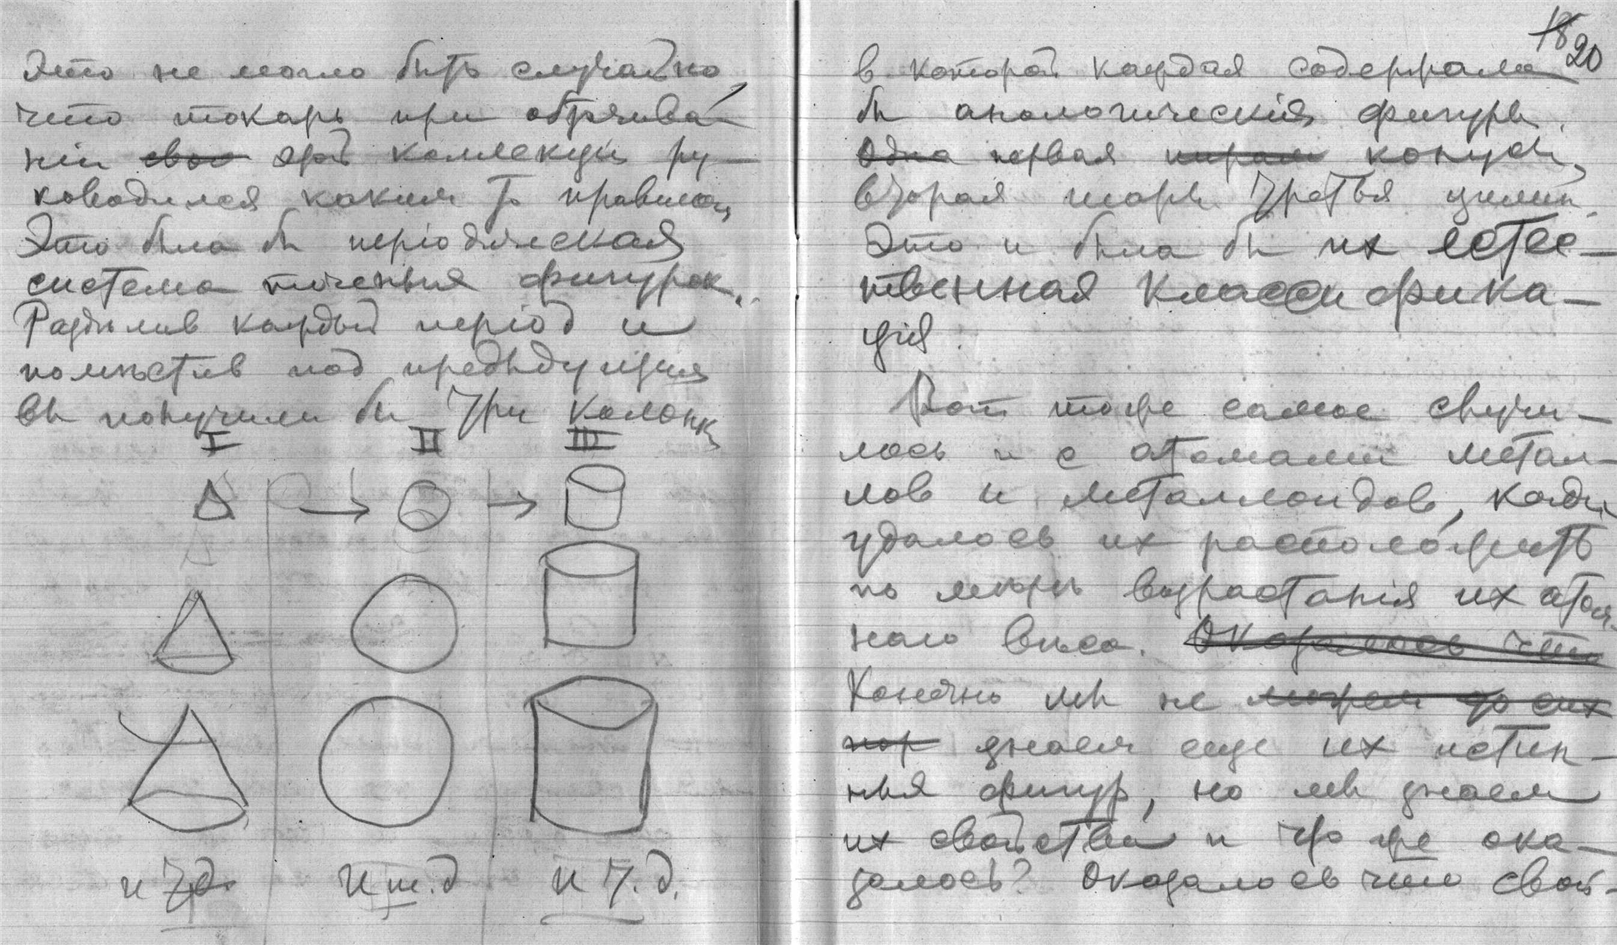 Это не могло быть случайно,
что токарь при обтачива-
ніи свое этой коллекціи ру-
ководился каким то правилом,
Это была бы періодическая
система точеныя фигурок.
Раздѣлив каждый період и
помѣстив под предъдущим
вы получили бы три колонки
I II III
и т.д. и т.д. и т.д.
18 20
в которой каждая содержала
бы аналогическія фигуры.
Одна первая конусы,
вторая шары третья цилин.
Это и была бы их естес-
твенная классифика-
ція.
Вот тоже самое случи-
лось и с атомами метал-
лов и металлоидов, когда
удалось их расположить
по мѣрѣ возрастанія их атом-
наго вѣса. Оказалось что
Конечно мы не можем до сих
пор знаем еще их истин-
ныя фигур, но мы знаем
их свойства и что же ока-
залось? Оказалось что свой-